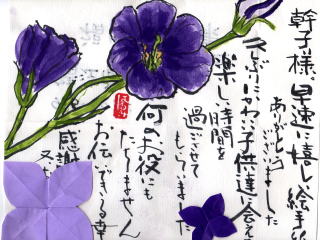 幹子様、早速に嬉しい絵手紙
ありがとう
ございました
久ぶりにかわいい子供達に会え
楽しい時間を
過ごさせて
もらいました
何のお役にも
たちません
お伝いできる幸
感謝
又